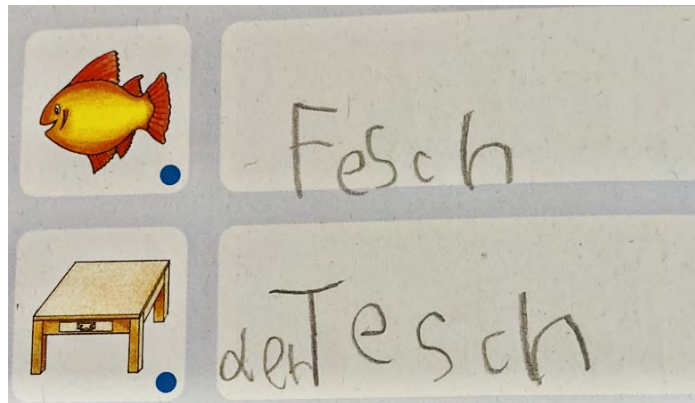 Fesch
der Tesch